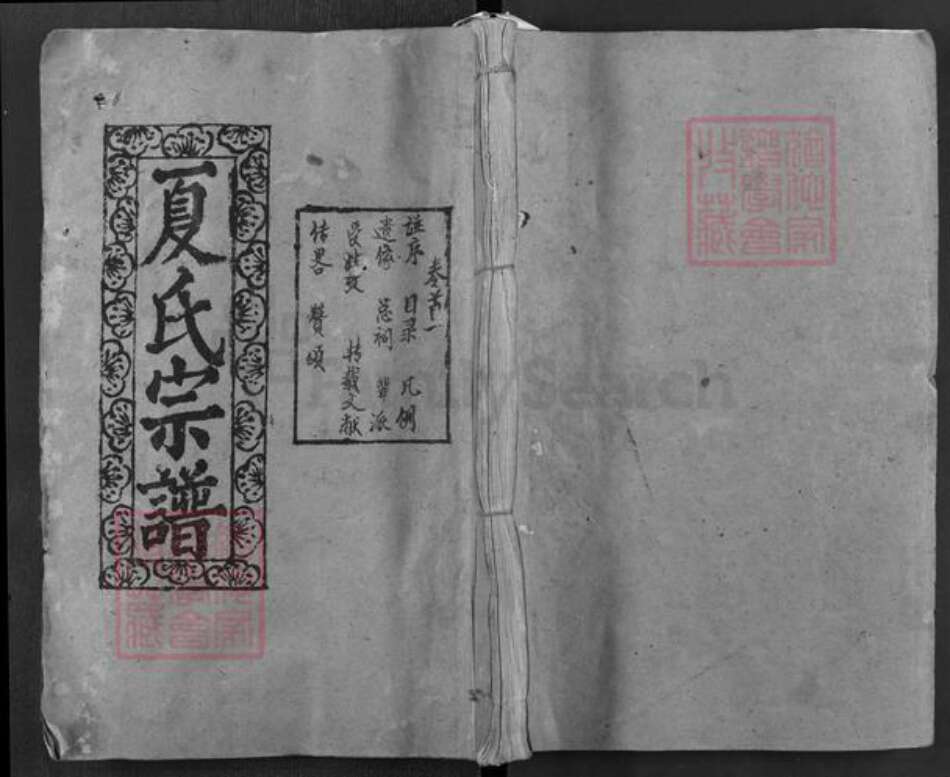 夏氏宗譜
卷首一
譜序 目录 凡例
遺像 总祠 班派
受姓考 转載文献
传畧 贊頌
FamilySearch